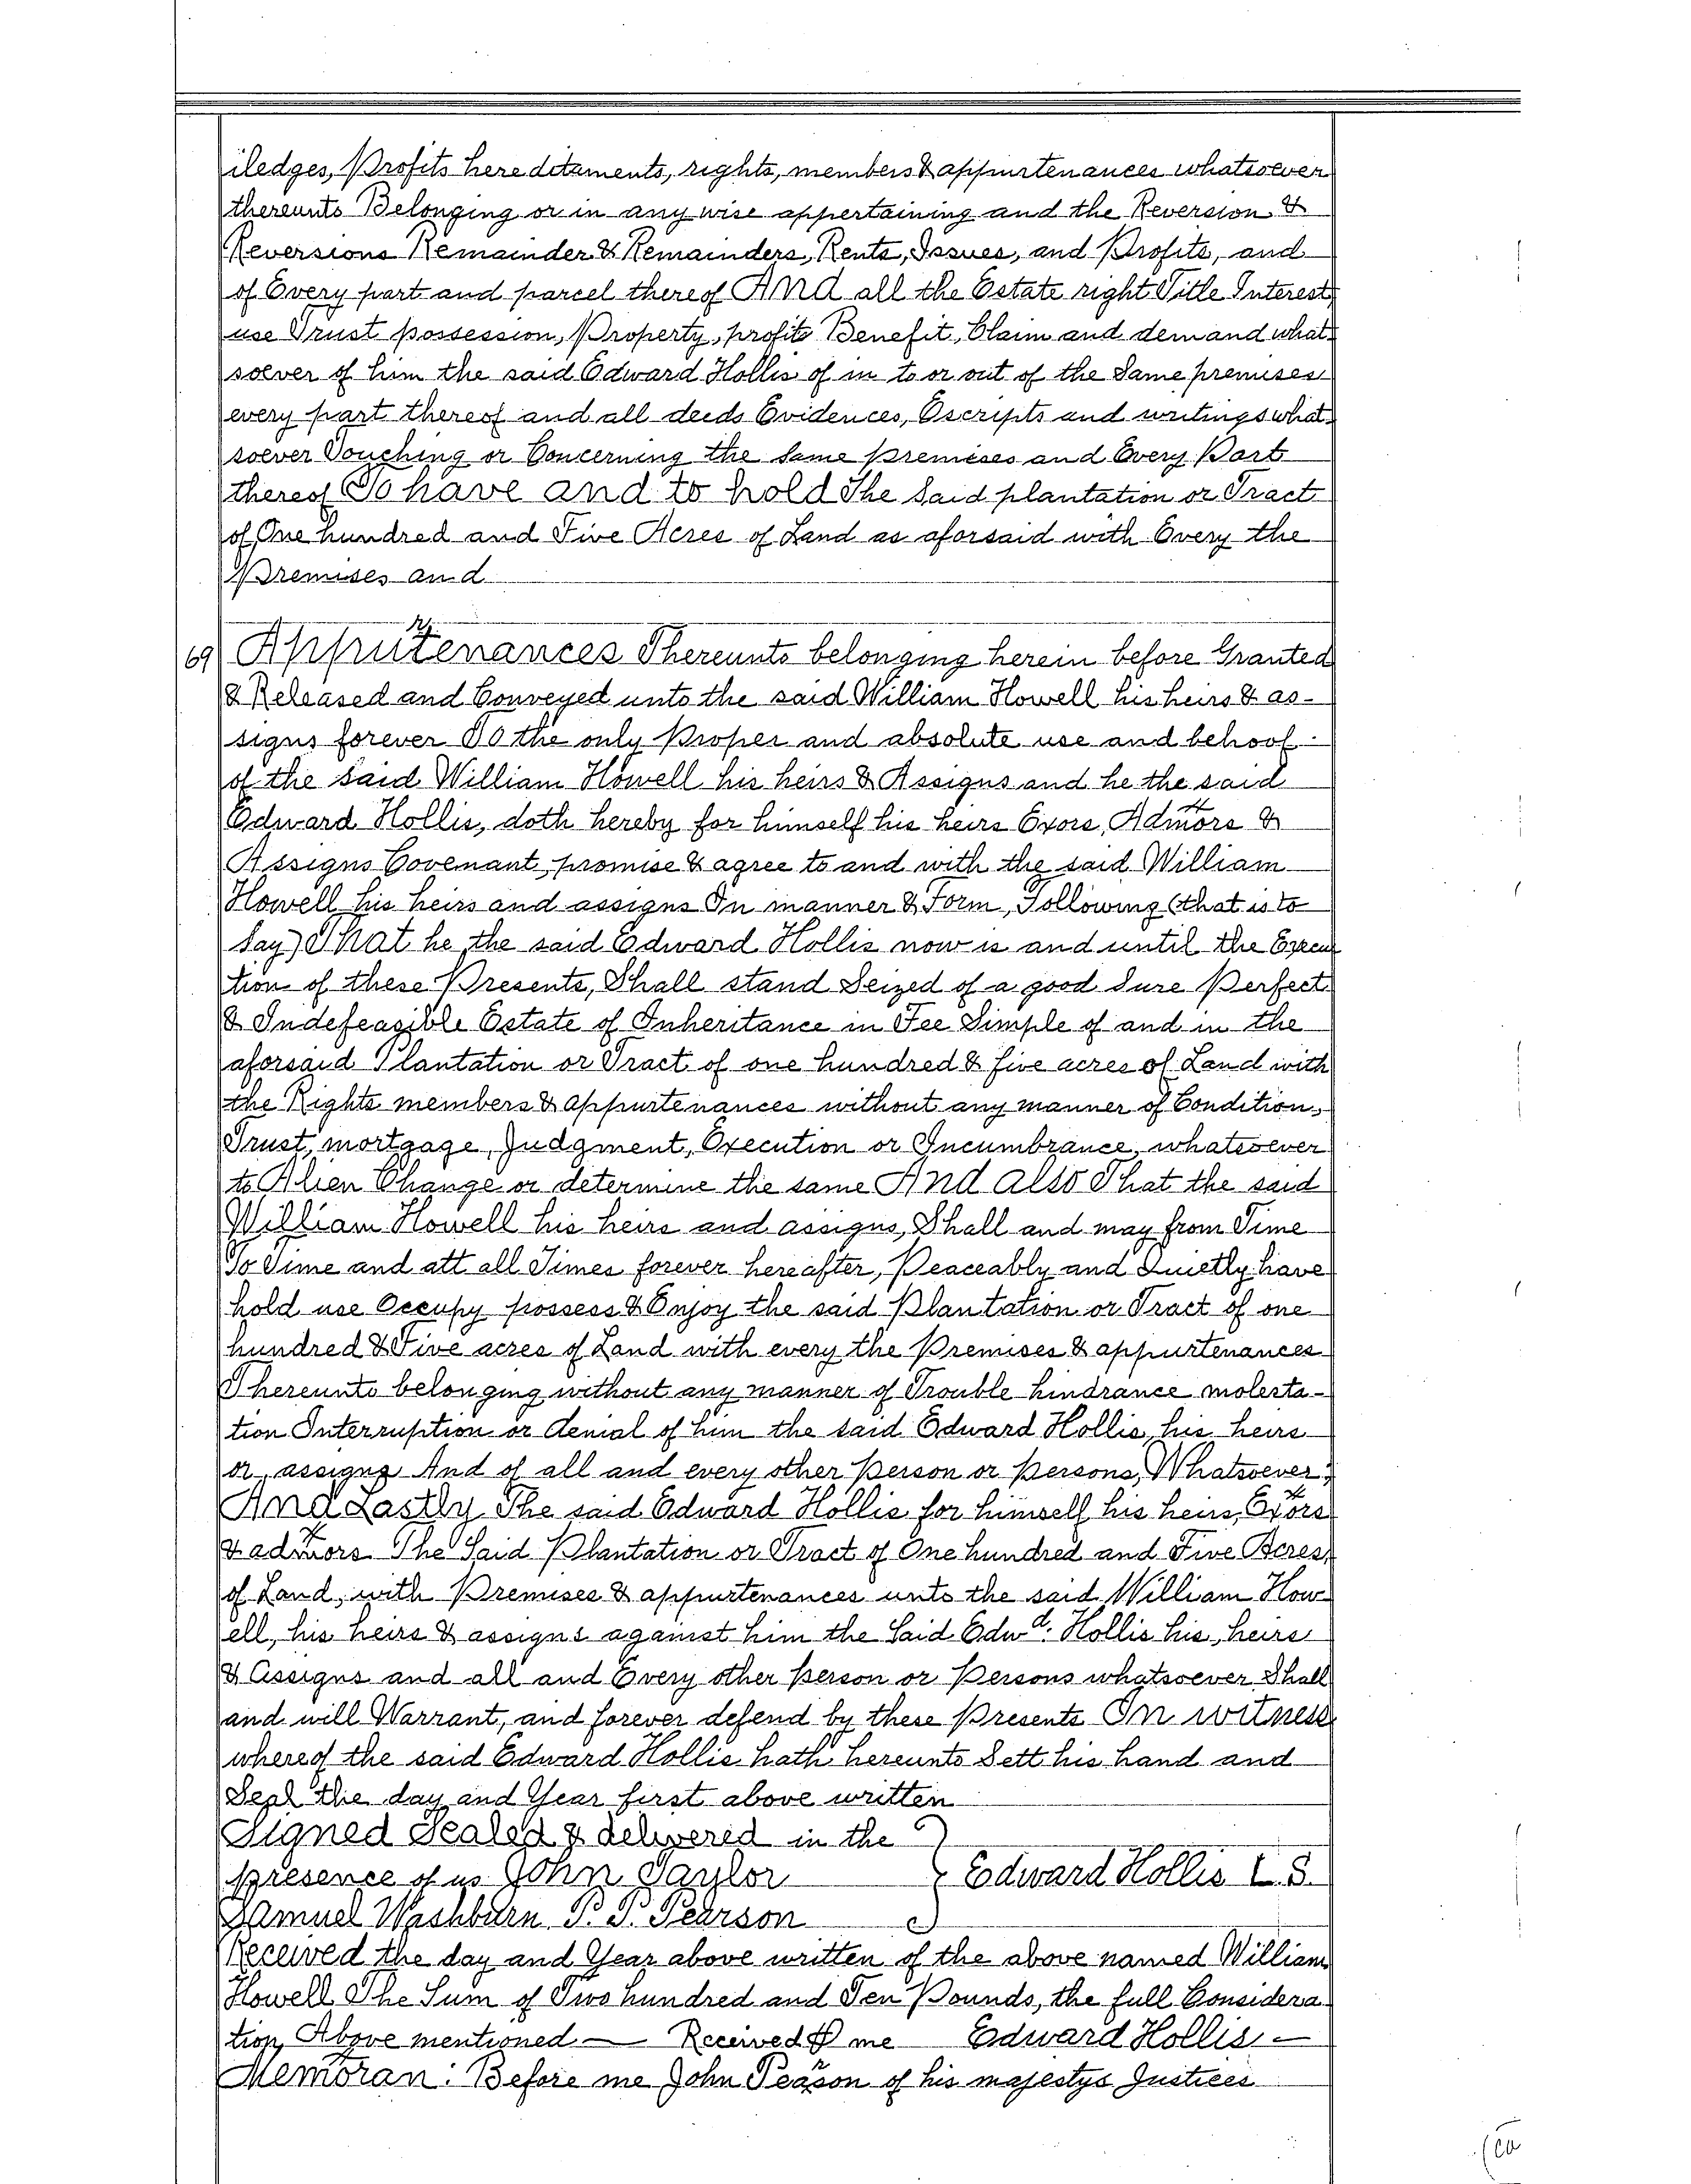 iledges, Profits hereditaments, rights, members & appurtenances whatsoever
thereunto Belonging or in any wise appertaining and the Reversion &
Reversions Remainder & Remainders, Rents, Issues, and Profits, and
of Every part and parcel thereof And all the Estate right Title Interest,
use Trust possession, Property, profits Benefit, Claim and demand what-
soever of him the said Edward Hollis of in to or out of the Same premises
every part thereof and all deeds Evidences, Escripts and writings what-
soever Touching or Concerning the Same premises and Every Part
thereof To have and to hold The Said plantation or Tract
of One hundred and Five Acres of Land as aforsaid with Every the
Premises and
69 Apprutenances Thereunto belonging herein before Granted
& Released and Conveyed unto the said William Howell his heirs & as-
signs forever To the only Proper and absolute use and behoof
of the said William Howell his heirs & Assigns and he the said
Edward Hollis, doth hereby for himself his heirs Exors, Admors &
Assigns Covenant, promise & agree to and with the said William
Howell his heirs and assigns In manner & Form, Following (that is to
Say) That he the said Edward Hollis now is and until the Execu
tion of these Presents, Shall stand Seized of a good Sure Perfect
& Indefeasible Estate of Inheritance in Fee Simple of and in the
aforsaid Plantation or Tract of one hundred & five acres of Land with
the Rights members & appurtenances without any manner of Condition,
Trust, mortgage, Judgment, Execution or Incumbrance, whatsoever
to Alien Change or determine the same And Also That the said
William Howell his heirs and assigns, Shall and may from Time
To Time and att all Times forever hereafter, Peaceably and Quietly have
hold use Occupy possess & Enjoy the said Plantation or Tract of one
hundred & Five acres of Land with every the Premises & appurtenances
Thereunto belonging without any manner of Trouble hindrance molesta-
tion Interruption or denial of him the said Edward Hollis, his heirs
or assigns And of all and every other Person or Persons, Whatsoever,
And Lastly The said Edward Hollis for himself his heirs, Exors
& admors The Said Plantation or Tract of One hundred and Five Acres,
of Land, with Premises & appurtenances unto the said William How
ell, his heirs & assigns against him the Said Edwd. Hollis his, heirs
& Assigns and all and Every other Person or Persons whatsoever Shall
and will Warrant, and forever defend by these Presents In witness
whereof the said Edward Hollis hath hereunto Sett his hand and
Seal the day and Year first above written
Signed Sealed & delivered in the
presence of us John Taylor Edward Hollis L. S.
Samuel Washburn P. T. Pearson
Received the day and Year above written of the above named William
Howell The Sum of Two hundred and Ten Pounds, the full Considera
tion, Above mentioned — Received me Edward Hollis —
Memoran: Before me John Peason of his majestys Justices